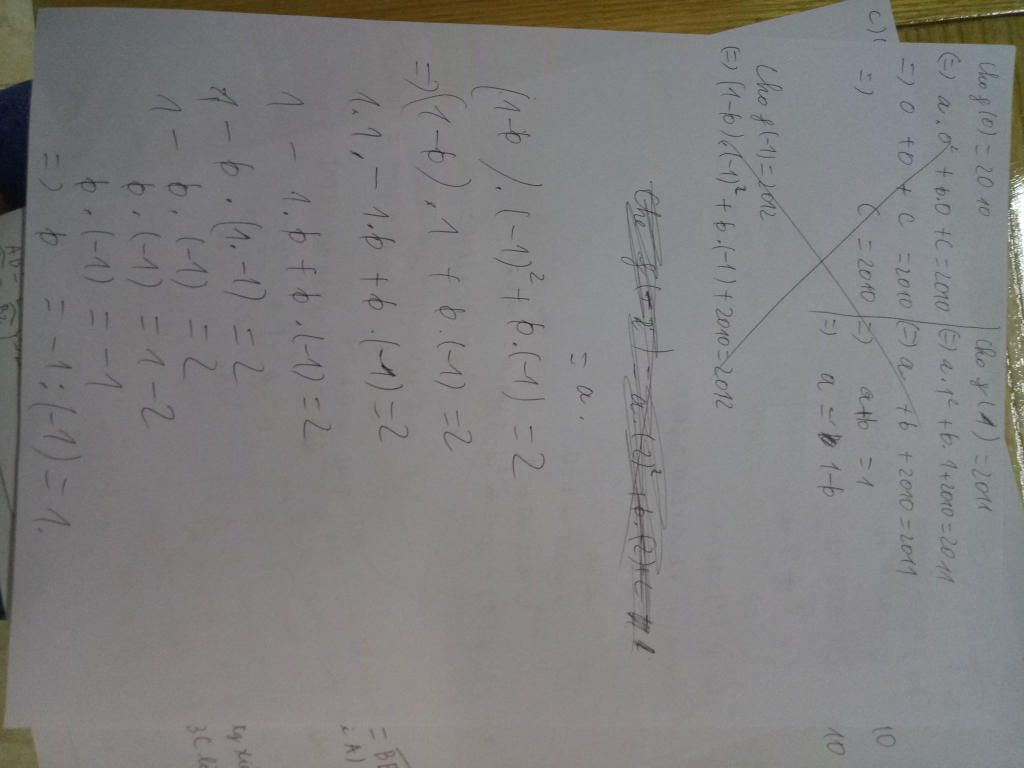 Cho f(0) = 2010
(=) a.0² + b.0 + c = 2010
=) 0 + 0 + c = 2010
=) c = 2010
Cho f(1) = 2011
(=) a.1² + b.1 + 2010 = 2011
(=) a + b + 2010 = 2011
=) a+b = 1
=) a = 1-b
c)
Cho f(-1) = 2012
(=) (1-b).(-1)² + b.(-1) + 2010 = 2012
= a.
(1-b).(-1)² + b.(-1) = 2
=) (1-b).1 + b.(-1) = 2
1.1 - 1.b + b.(-1) = 2
1 - 1.b + b.(-1) = 2
1 - b.(1.-1) = 2
1 - b.(-1) = 2
b.(-1) = 1-2
b.(-1) = -1
=) b = -1:(-1) = 1.
10
10